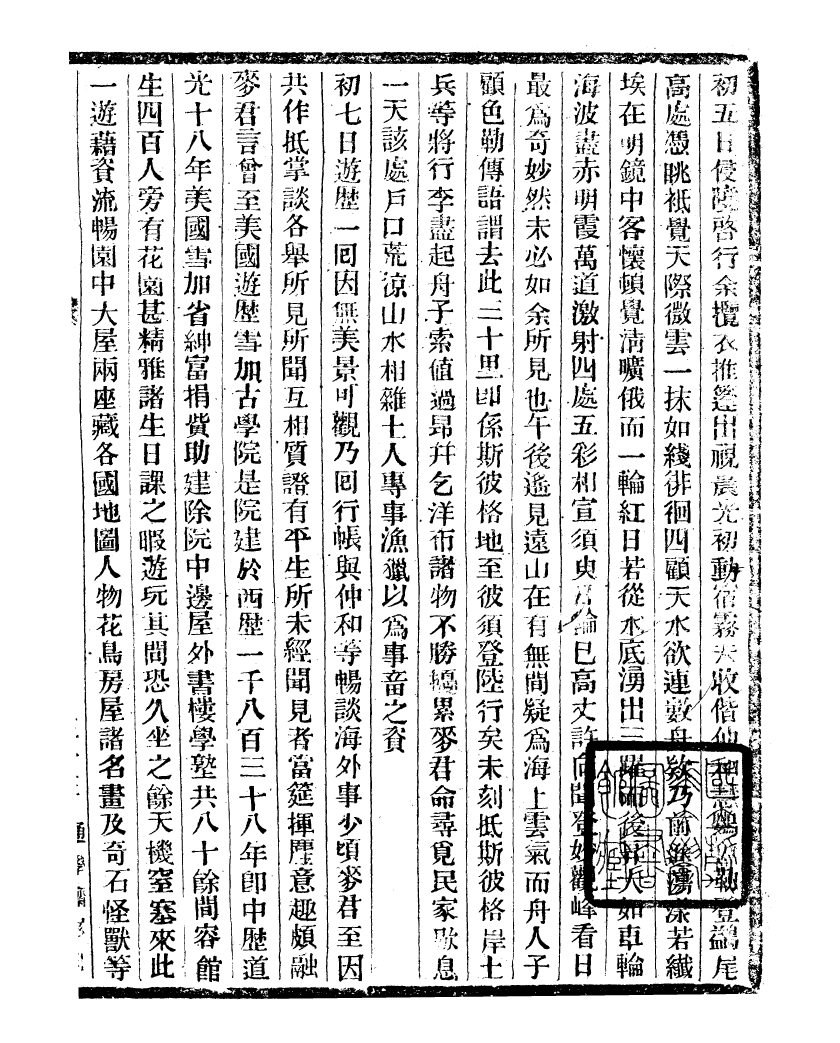 初五日侵曉啓行余攬衣推篷出視晨光初動宿霧未收偕仲和慧鶴勒登鷁尾
高處憑眺祇覺天際微雲一抹如綫徘徊四顧天水欲連數舟欸乃前進蕩漾若纖
埃在明鏡中客懷頓覺淸曠俄而一輪紅日若從水底湧出三躍而後升大如車輪
海波盡赤明霞萬道激射四處五彩相宣須臾輪已高丈許向聞登妙觀峰看日
最爲奇妙然未必如余所見也午後遙見遠山在有無間疑爲海上雲氣而舟人子
顧色勒傳語謂去此二十里卽係斯彼格地至彼須登陸行矣未刻抵斯彼格岸士
兵等將行李盡起舟子索值過昂幷乞洋布諸物不勝纒累麥君命尋覓民家歇息
一天該處戶口荒涼山水相雜土人專事漁獵以爲事畜之資
初七日遊歷一囘因無美景可觀乃囘行帳與仲和等暢談海外事少頃麥君至因
共作抵掌談各舉所見所聞互相質證有平生所未經聞見者當筵揮麈意趣頗融
麥君言曾至美國遊歷雪加古學院是院建於西歷一千八百三十八年卽中歷道
光十八年美國雪加省紳富捐貲助建除院中邊屋外書樓學塾共八十餘間容館
生四百人旁有花園甚精雅諸生日課之暇遊玩其間恐久坐之餘天機窒塞來此
一遊藉資流暢園中大屋兩座藏各國地圖人物花鳥房屋諸名畫及奇石怪獸等
通學齋